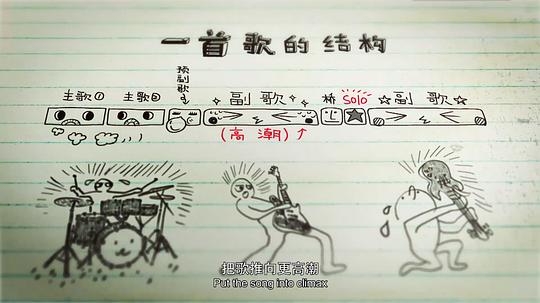 一首歌的结构
预副歌
主歌① 主歌② 副歌 桥 Solo 副歌
(高潮)↑
把歌推向更高潮
Put the song into climax